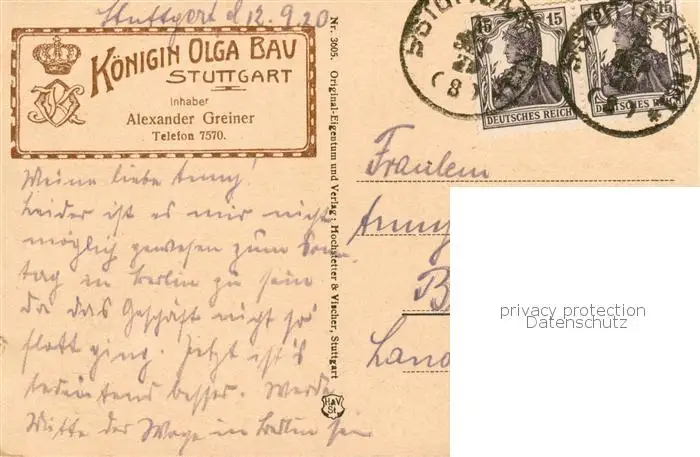 Stuttgart d 12.9.20
KÖNIGIN OLGA BAU
STUTTGART
Inhaber
Alexander Greiner
Telefon 7570.
Meine liebe Anny!
Leider ist es mir nicht
möglich gewesen zum Sonn
tag in Berlin zu sein
da das Geschäft nicht so
flott ging. Jetzt ist's
bedeutend besser. Werde
Mitte der Woge in Berlin sein
Nr. 3905. Original-Eigentum und Verlag: Hochstetter & Vischer, Stuttgart
H&V
St
STUTTGART
(8)
15 15
DEUTSCHES REICH
15
DEUTSCHES REICH
STUTTGART
Fräulein
Anny
B
Land
privacy protection
Datenschutz